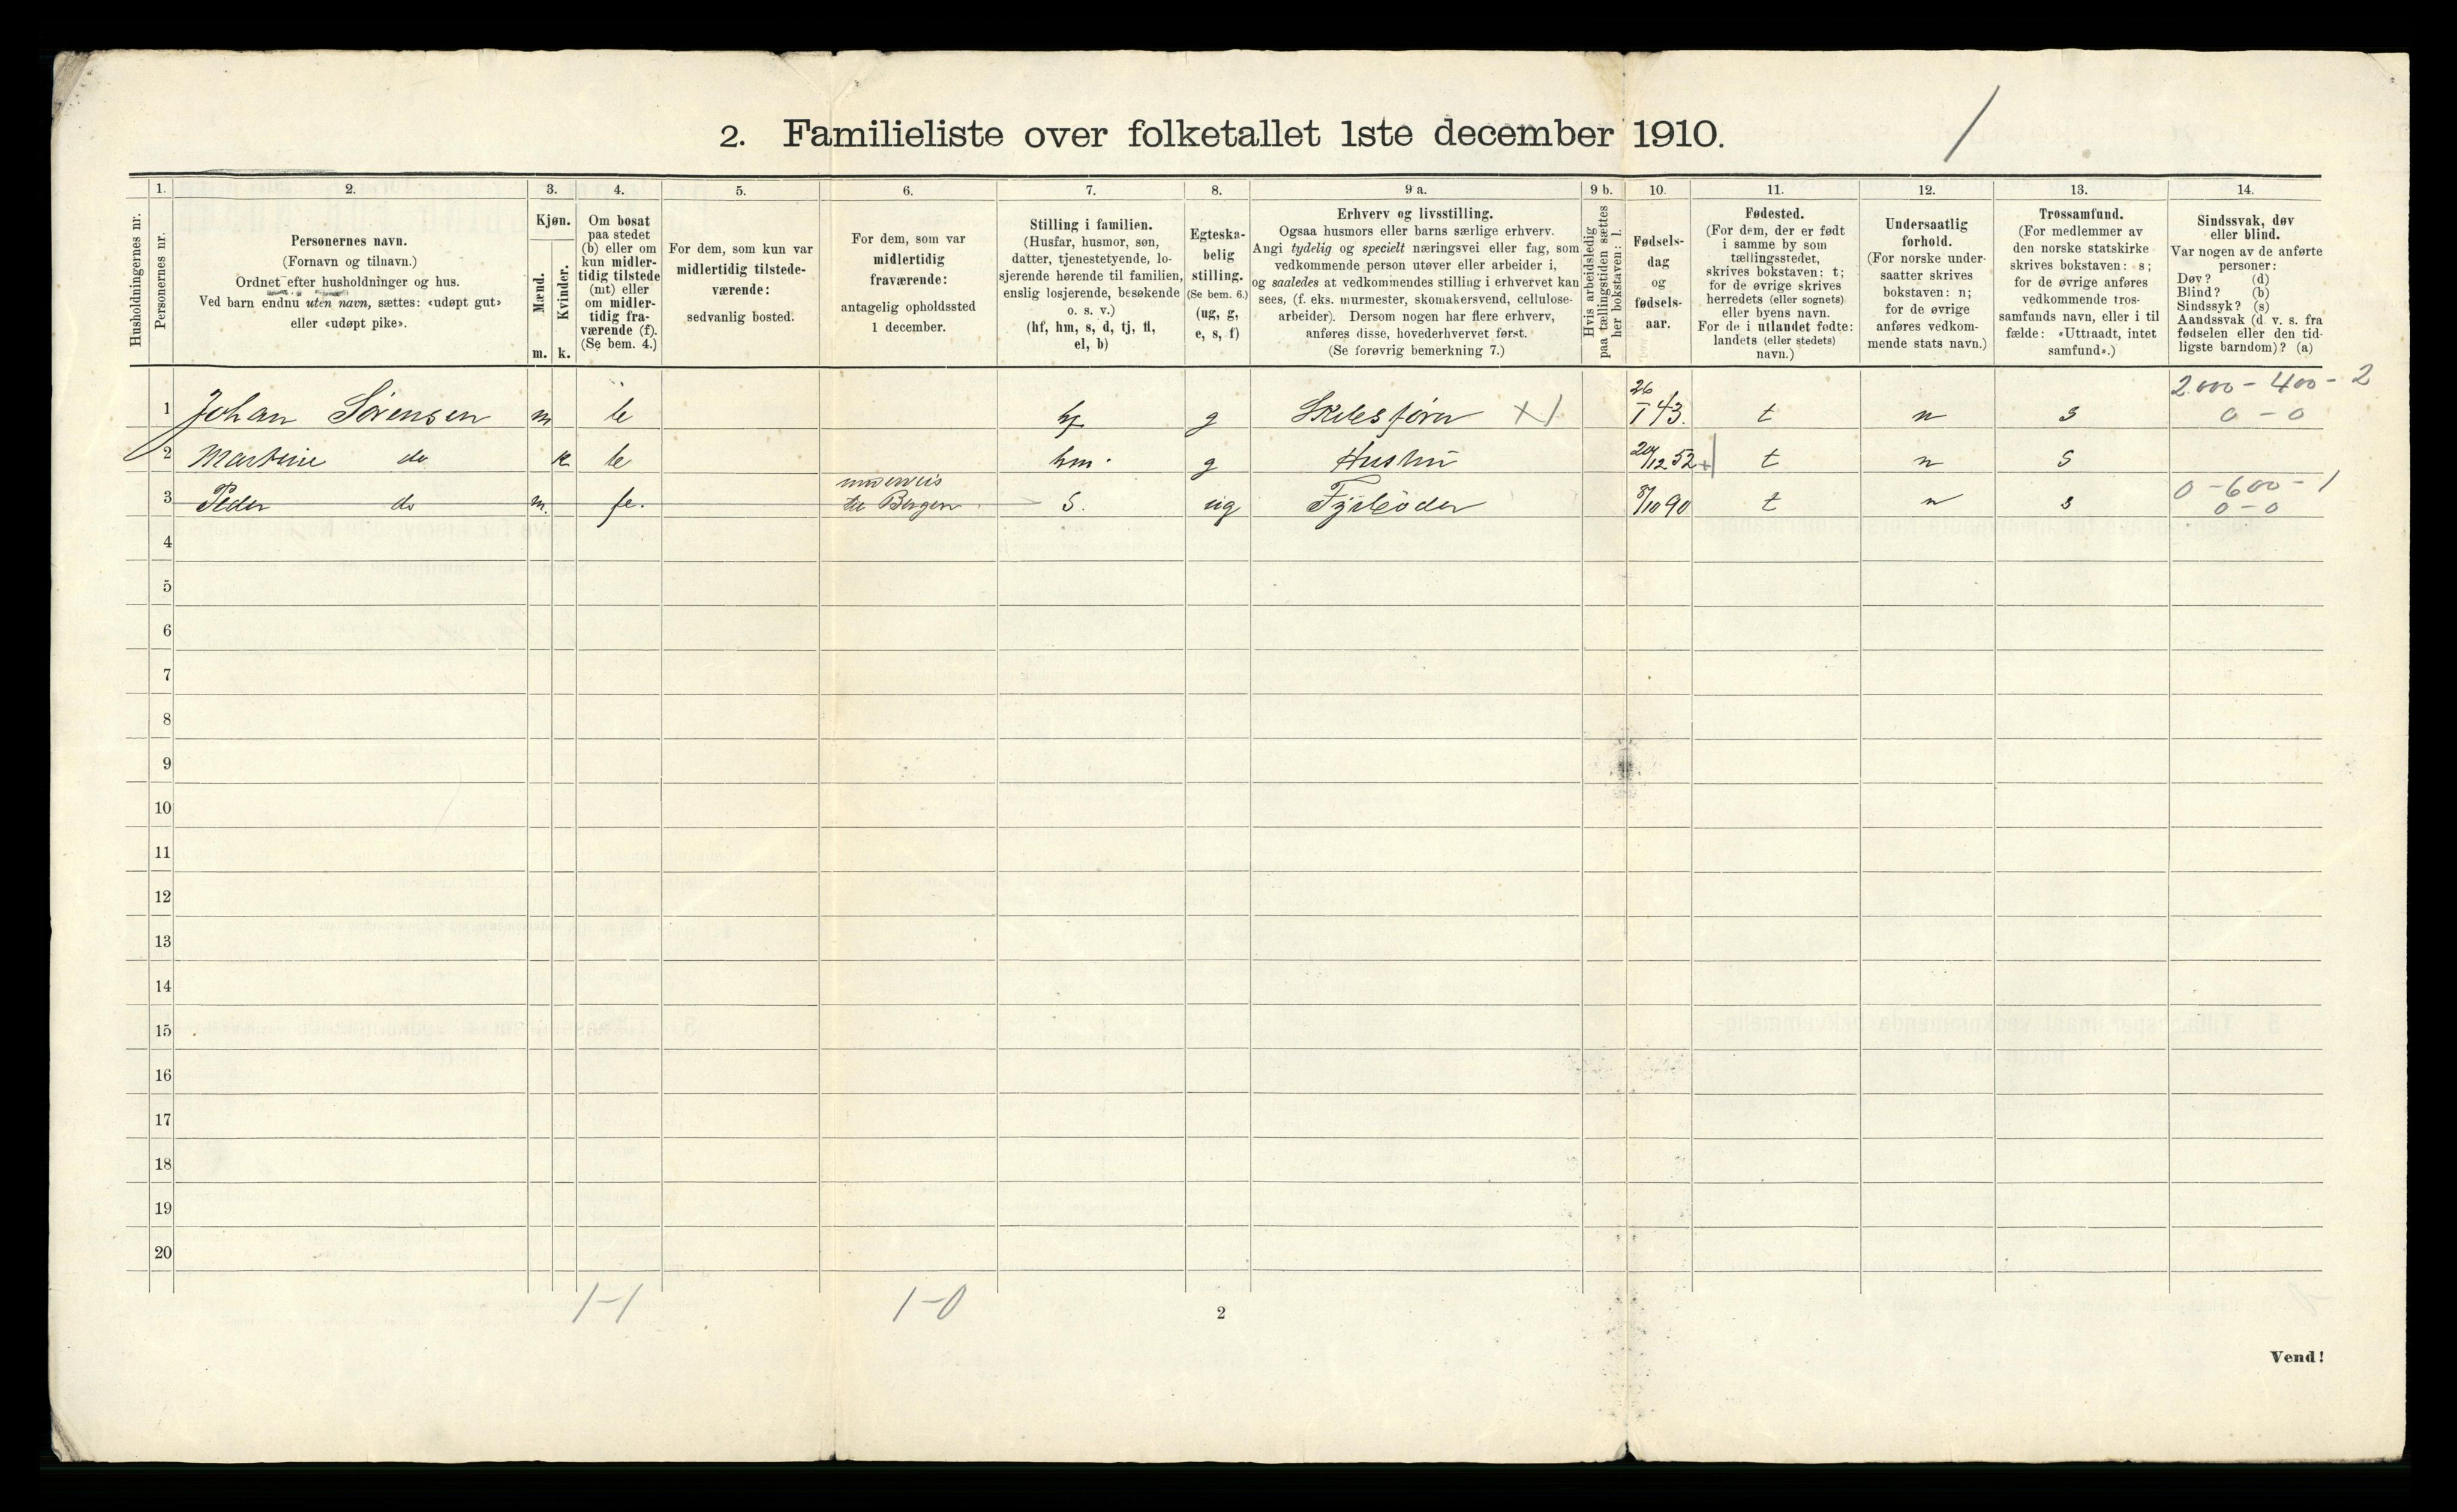 2. Familieliste over folketallet 1ste december 1910.
1. 2. 3. 4. 5. 6. 7. 8. 9 a. 9 b. 10. 11. 12. 13. 14.
Husholdningernes nr.
Personernes nr.
Personernes navn.
(Fornavn og tilnavn.)
Ordnet efter husholdninger og hus.
Ved barn endnu uten navn, sættes: «udøpt gut»
eller «udøpt pike».
Kjøn.
Mænd.
Kvinder.
m. k.
Om bosat
paa stedet
(b) eller om
kun midler-
tidig tilstede
(mt) eller
om midler-
tidig fra-
værende (f).
(Se bem. 4.)
For dem, som kun var
midlertidig tilstede-
værende:
sedvanlig bosted.
For dem, som var
midlertidig
fraværende:
antagelig opholdssted
1 december.
Stilling i familien.
(Husfar, husmor, søn,
datter, tjenestetyende, lo-
sjerende hørende til familien,
enslig losjerende, besøkende
o. s. v.)
(hf, hm, s, d, tj, fl,
el, b)
Egteska-
belig
stilling.
(Se bem. 6.)
(ug, g,
e, s, f)
Erhverv og livsstilling.
Ogsaa husmors eller barns særlige erhverv.
Angi tydelig og specielt næringsvei eller fag, som
vedkommende person utøver eller arbeider i,
og saaledes at vedkommendes stilling i erhvervet kan
sees, (f. eks. murmester, skomakersvend, cellulose-
arbeider). Dersom nogen har flere erhverv,
anføres disse, hovederhvervet først.
(Se forøvrig bemerkning 7.)
Hvis arbeidsledig
paa tællingstiden sættes
her bokstaven: l.
Fødsels-
dag
og
fødsels-
aar.
Fødested.
(For dem, der er født
i samme by som
tællingsstedet,
skrives bokstaven: t;
for de øvrige skrives
herredets (eller sognets)
eller byens navn.
For de i utlandet fødte:
landets (eller stedets)
navn.)
Undersaatlig
forhold.
(For norske under-
saatter skrives
bokstaven: n;
for de øvrige
anføres vedkom-
mende stats navn.)
Trossamfund.
(For medlemmer av
den norske statskirke
skrives bokstaven: s;
for de øvrige anføres
vedkommende tros-
samfunds navn, eller i til-
fælde: «Uttraadt, intet
samfund».)
Sindssvak, døv
eller blind.
Var nogen av de anførte
personer:
Døv? (d)
Blind? (b)
Sindssyk? (s)
Aandssvak (d. v. s. fra
fødselen eller den tid-
ligste barndom)? (a)
2000 - 400 - 2
1 Johan Sørensen m b hf g Skibsfører X 1 26/I 43. t n s 0 - 0
2 Martine do k b hm. g Hustru 20/12 52 t n s
3 Peder do m. f. underveis til Bergen s. ug Fyrbøder 8/10 90 t n s 0 - 600 - 1
0 - 0
4
5
6
7
8
9
10
11
12
13
14
15
16
17
18
19
20
1-1 1-0
2
Vend!